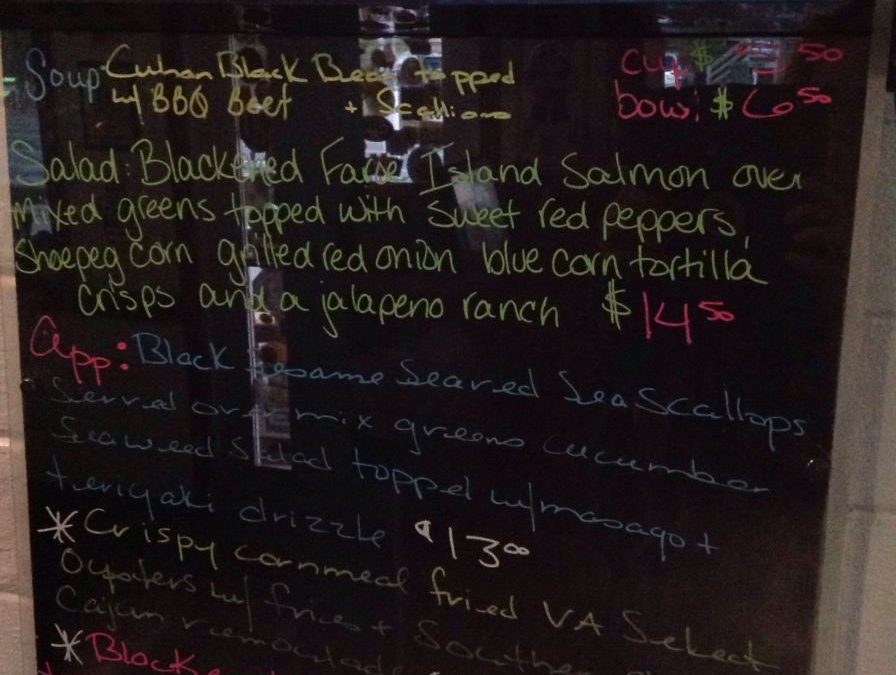 Soup Cuban Black Bean topped
w/ BBQ Beef + Scallions
cup $ 50
bowl $ 6 50
Salad: Blackened Faroe Island Salmon over
mixed greens topped with sweet red peppers,
shoepeg corn grilled red onion blue corn tortilla
crisps and a jalapeno ranch $ 14 50
App: Black Sesame Seared Sea Scallops
Served over mix greens cucumber
Seaweed Salad topped w/ masago +
teriyaki drizzle $13 00
* Crispy cornmeal fried VA Select
Oysters w/ fries + Southern
Cajun remoulade
*